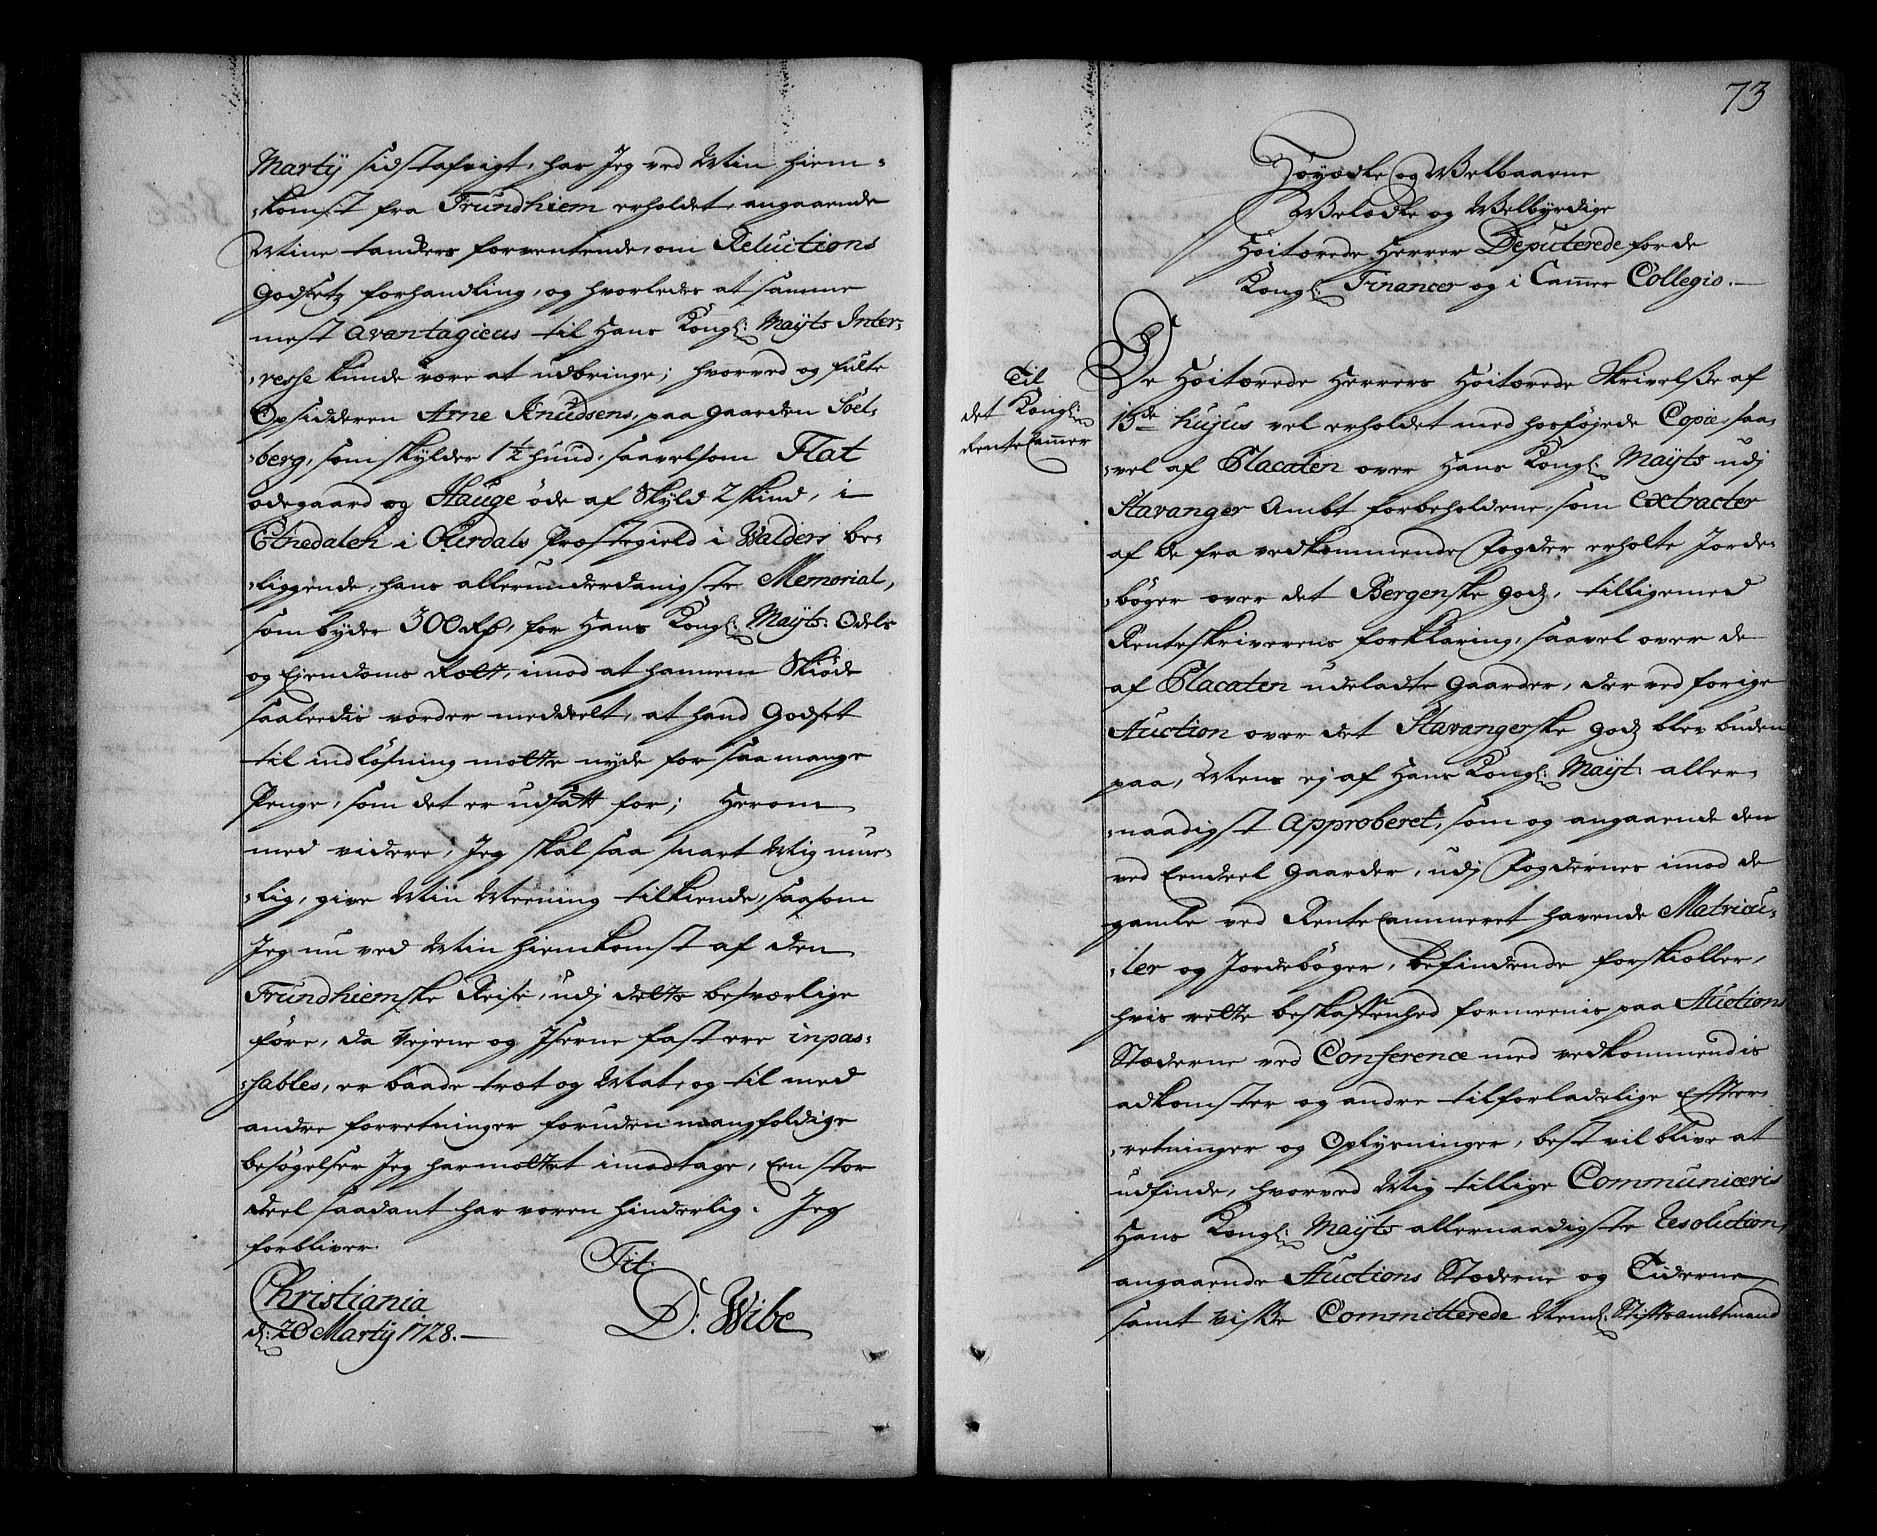 Martij sidstafvigt, har Jeg ved Min Hiem-
-komst fra Trundhiem erholdet, angaaende
Mine tanckers forventende, om Reluctions
Godsetz forhandling, og hvorledes at samme
mest avantagieus til Hans Kongl: Maÿts Inter-
-resse kunde være at udbringe; hvorved og fulte
Opsidderen Arne Knudsens, paa Gaarden Soel-
-berg, som skylder 1½ huud, saavelsom Flat
ødegaard og Hauge øde af Skyld 2 skind, i
Etnedalen i Ourdals Præstegield i Walders be-
-liggende, hans allerunderdanigste Memorial,
som byder 300 Rdr, for Hans Kongl: Maÿts: Odels
og Ejendoms Rætt, imod at hannem Skiøde
saaleedis vorder meddeelt, at hand Godset
til indløsning motte nyde for saa mange
Penge, som det er udsatt for; Herom
med videre, Jeg skal saa snart Mig mue-
-lig, give Min Meening tilkiende, saasom
Jeg nu ved Min Hiemkomst af den
Trundhiemske Reise, udj dette besværlige
føre, da Vejene og Iserne fast ere inpas-
-sables, er baade træt og Mat, og til med
andre forretninger foruden mangfoldige
besøgelser Jeg har mottet imodtage, Een stor
deel saadant har voren hinderlig. Jeg
forbliver.
Tit:
Christiania
d: 20 Martij 1728.
D: Wibe
73
Høyædle og Welbaarne
Welædle og Welbyrdige
Høitærede Herrer Deputerede for de
Kongl: Financer og i Cammer Collegio.
Til
det Kongl:
Rente Cammer
De Høitærede Herrers Høitærede Skrivelse af
13de hujus vel erholdet med hosføjede Copie, saa-
-vel af Placaten over Hans Kongl: Maÿts udj
Stavanger Ambt forbeholdene, som extracter
af de fra vedkommende Fogder erholte Jorde-
-bøger over det Bergenske Godz, tilligemed
Renteskriverens forklaring, saavel over de
af Placaten udeladte Gaarder, der ved forige
Auction over det Stavangerske Godz blev buden
paa, Mens ej af Hans Kongl: Maÿt: aller-
-naadigst Approberet, som og angaaende den
ved Eendeel Gaarder, udj Fogdernes imod de
gamle ved Rente Cammeret havende Matricu-
-ler og Jordebøger, befindende forskiæller,
hvis rette beskaffenhed formeenis paa Auctions
Stæderne ved Conference med vedkommendis
adkomster og andre tilforladelige Effter-
-retninger og Oplysninger, best vil blive at
udfinde, hvorved Mig tillige Communiceris
Hans Kongl: Maÿts allernaadigste Resolution,
angaaende Auctions Stæderne og Tiderne,
samt visse Committerede Neml: Stiftsambtmand